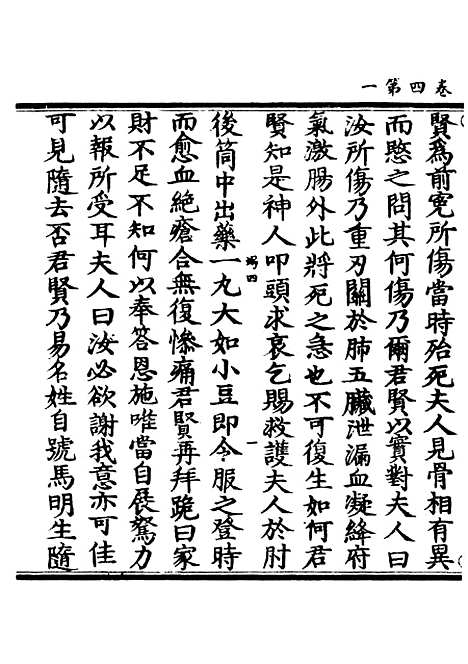 卷四第一
賢為前寃所傷當時殆死夫人見骨相有異
而愍之問其何傷乃爾君賢以實對夫人曰
汝所傷乃重刃關於肺五臟泄漏血凝絳府
氣激腸外此將死之急也不可復生如何君
賢知是神人叩頭求哀乞賜救護夫人於肘
後筒中出藥一丸大如小豆即令服之登時
而愈血絕瘡合無復慘痛君賢再拜跪曰家
財不足不知何以奉答恩施唯當自展駑力
以報所受耳夫人曰汝必欲謝我意亦可佳
可見隨去否君賢乃易名姓自號馬明生隨